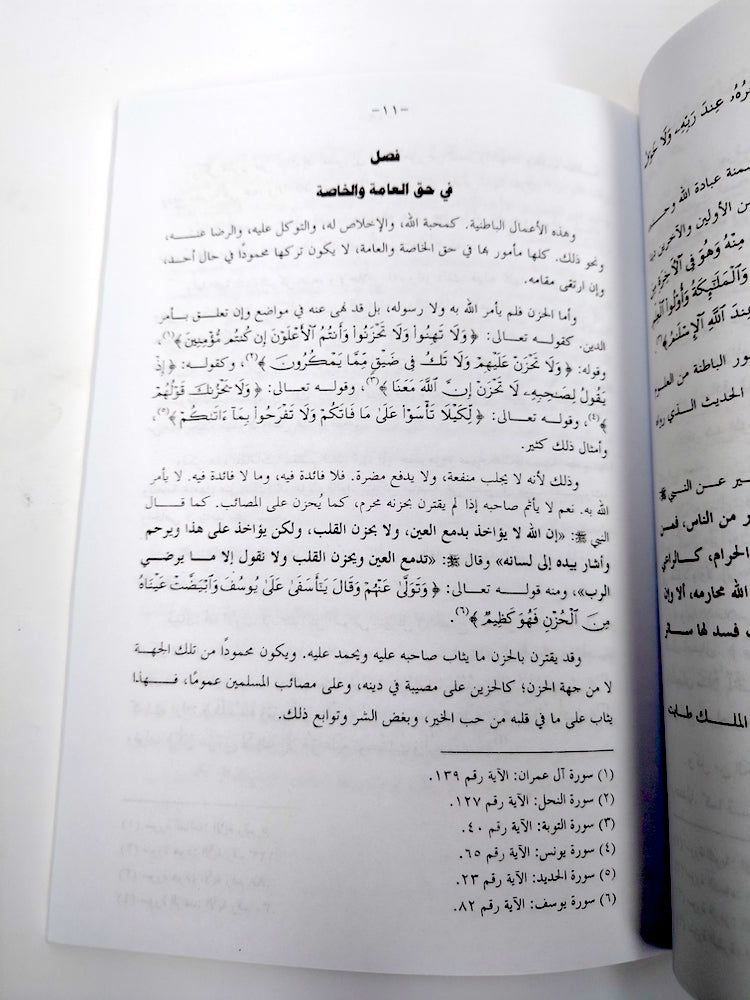 -١١-
فصل
في حق العامة والخاصة
وهذه الأعمال الباطنية. كمحبة الله، والإخلاص له، والتوكل عليه، والرضا عنه،
ونحو ذلك. كلها مأمور بها في حق الخاصة والعامة، لا يكون تركها محمودًا في حال أحد،
وإن ارتقى مقامه.
وأما الحزن فلم يأمر الله به ولا رسوله، بل قد نهى عنه في مواضع وإن تعلق بأمر
الدين. كقوله تعالى: ﴿ وَلَا تَهِنُوا۟ وَلَا تَحْزَنُوا۟ وَأَنتُمُ ٱلْأَعْلَوْنَ إِن كُنتُم مُّؤْمِنِينَ ﴾(١)،
وقوله: ﴿ وَلَا تَحْزَنْ عَلَيْهِمْ وَلَا تَكُ فِى ضَيْقٍ مِّمَّا يَمْكُرُونَ ﴾(٢)، وكقوله: ﴿ إِذْ
يَقُولُ لِصَـٰحِبِهِۦ لَا تَحْزَنْ إِنَّ ٱللَّهَ مَعَنَا ﴾(٣)، وقوله تعالى: ﴿ وَلَا يَحْزُنكَ قَوْلُهُمْ
﴾(٤)، وقوله تعالى: ﴿ لِّكَيْلَا تَأْسَوْا۟ عَلَىٰ مَا فَاتَكُمْ وَلَا تَفْرَحُوا۟ بِمَآ ءَاتَىٰكُمْ ﴾(٥)،
وأمثال ذلك كثير.
وذلك لأنه لا يجلب منفعة، ولا يدفع مضرة. فلا فائدة فيه، وما لا فائدة فيه. لا يأمر
الله به. نعم لا يأثم صاحبه إذا لم يقترن بحزنه محرم، كما يُحزن على المصائب. كما قال
النبي ﷺ: «إن الله لا يؤاخذ بدمع العين، ولا بحزن القلب، ولكن يؤاخذ على هذا ويرحم
وأشار بيده إلى لسانه» وقال ﷺ: «تدمع العين ويحزن القلب ولا نقول إلا ما يرضي
الرب»، ومنه قوله تعالى: ﴿ وَتَوَلَّىٰ عَنْهُمْ وَقَالَ يَـٰٓأَسَفَىٰ عَلَىٰ يُوسُفَ وَٱبْيَضَّتْ عَيْنَاهُ
مِنَ ٱلْحُزْنِ فَهُوَ كَظِيمٌ ﴾(٦).
وقد يقترن بالحزن ما يثاب صاحبه عليه ويحمد عليه. ويكون محمودًا من تلك الجهة
لا من جهة الحزن؛ كالحزين على مصيبة في دينه، وعلى مصائب المسلمين عمومًا، فهذا
يثاب على ما في قلبه من حب الخير، وبغض الشر وتوابع ذلك.
(١) سورة آل عمران: الآية رقم ١٣٩.
(٢) سورة النحل: الآية رقم ١٢٧.
(٣) سورة التوبة: الآية رقم ٤٠.
(٤) سورة يونس: الآية رقم ٦٥.
(٥) سورة الحديد: الآية رقم ٢٣.
(٦) سورة يوسف: الآية رقم ٨٢.
عِندَ رَبِّهِۦ وَلَا خَوْفٌ
عبادة الله
ـن الأولين والآخرين
مِنْهُ وَهُوَ فِى ٱلْـَٔاخِرَةِ مِنَ
وَٱلْمَلَـٰٓئِكَةُ وَأُو۟لُوا۟ ٱلْعِلْمِ
عِندَ ٱللَّهِ ٱلْإِسْلَـٰمُ
الباطنة من العلوم
الحديث الذي رواه
عن النبي ﷺ
من الناس، فمن
الحرام، كالراعي
الله محارمه، ألا وإن
فسد لها سائر
الملك طابت